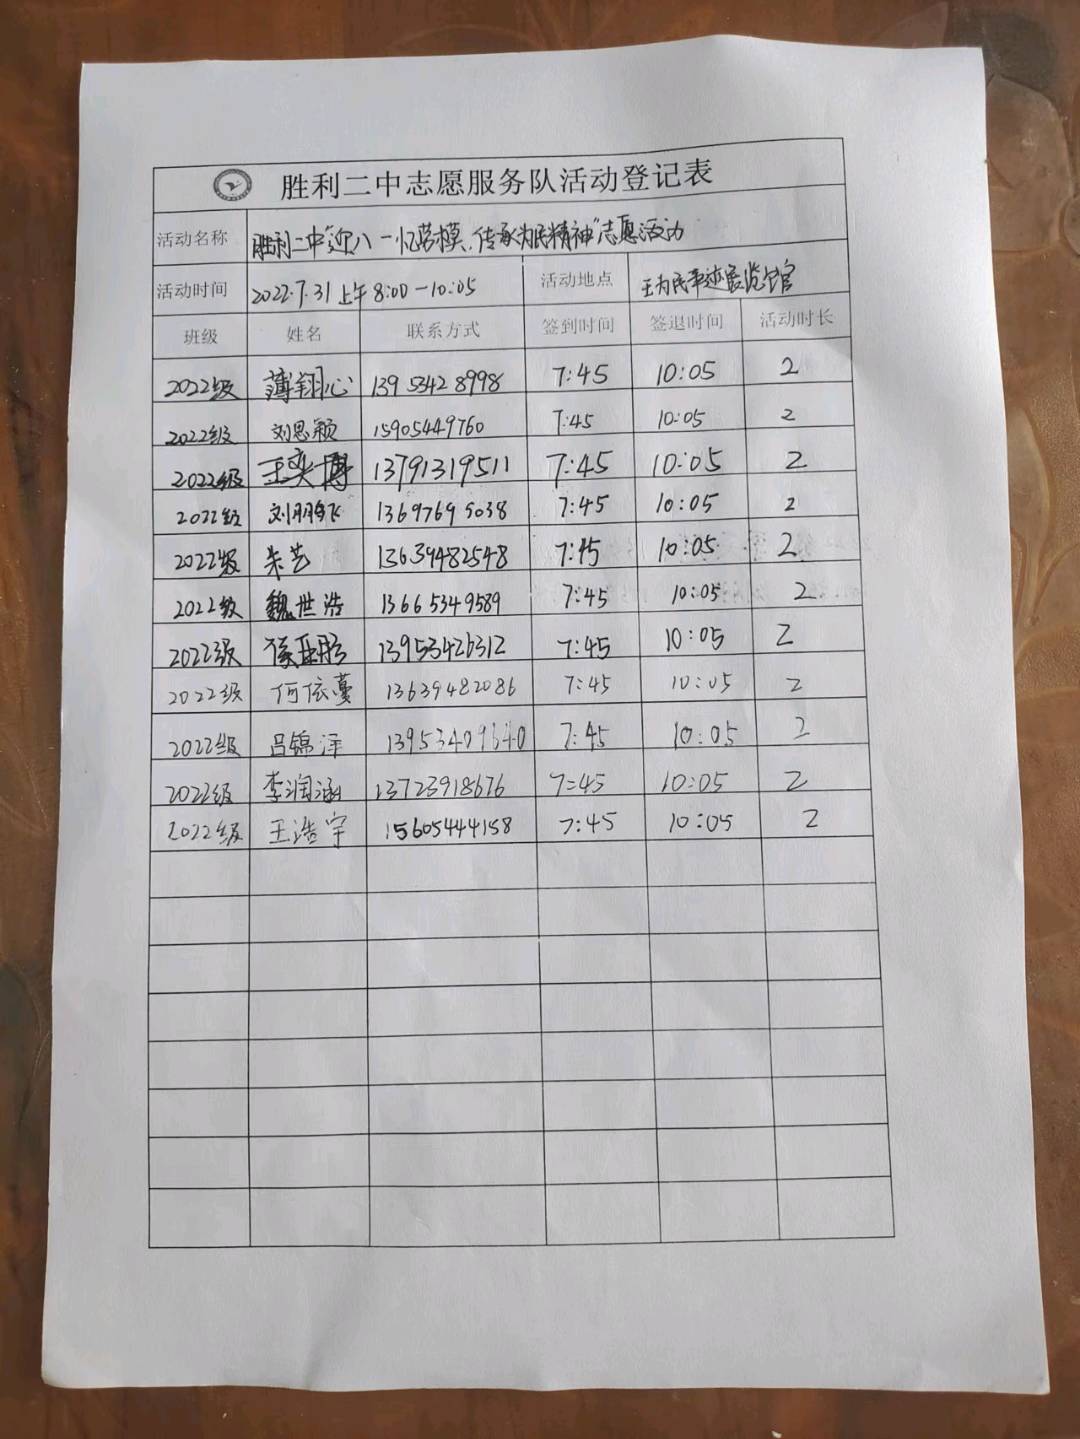 胜利二中志愿服务队活动登记表
活动名称 胜利二中"迎八一忆劳模,传承为民精神"志愿活动
活动时间 2022.7.31 上午 8:00-10:05 活动地点 王为民事迹展览馆
班级 姓名 联系方式 签到时间 签退时间 活动时长
2022级 薄翔心 13953428998 7:45 10:05 2
2022级 刘思颖 15905449760 7:45 10:05 2
2022级 王奕博 13791319511 7:45 10:05 2
2022级 刘鹏飞 13697695038 7:45 10:05 2
2022级 朱艺 13639482548 7:45 10:05 2
2022级 魏世浩 13665349589 7:45 10:05 2
2022级 13953426312 7:45 10:05 2
2022级 何依蔓 13639482086 7:45 10:05 2
2022级 吕锦泽 13953409640 7:45 10:05 2
2022级 李润涵 13723918676 7:45 10:05 2
2022级 王浩宇 15605444158 7:45 10:05 2